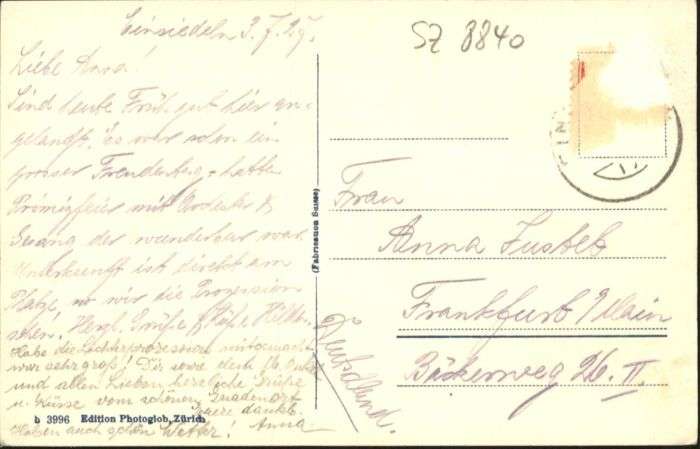 Einsiedeln 3.7.29.
Liebe Anna!
Sind heute Früh gut hier an-
gelangt. Es war schon ein
grosser Freudentag, hatten
Primizfeier mit Orchester &
Gesang der wunderbar war.
Unterkunft ist direkt am
Platze wo wir die Prozession
sehen. Herzl. Grüße & Küße
Habe die Lichterprozession mitgemacht
war sehr groß! Dir sowie dem
und allen Lieben herzliche Grüße
u. Küsse vom schönen Gnadenort
Anna
Haben auch schön Wetter!
b 3996 Edition Photoglob, Zürich
(Fabrication Suisse)
SZ 8840
EIN
Frau
Anna
Frankfurt / Main
Bäckerweg 26 II
Deutschland.